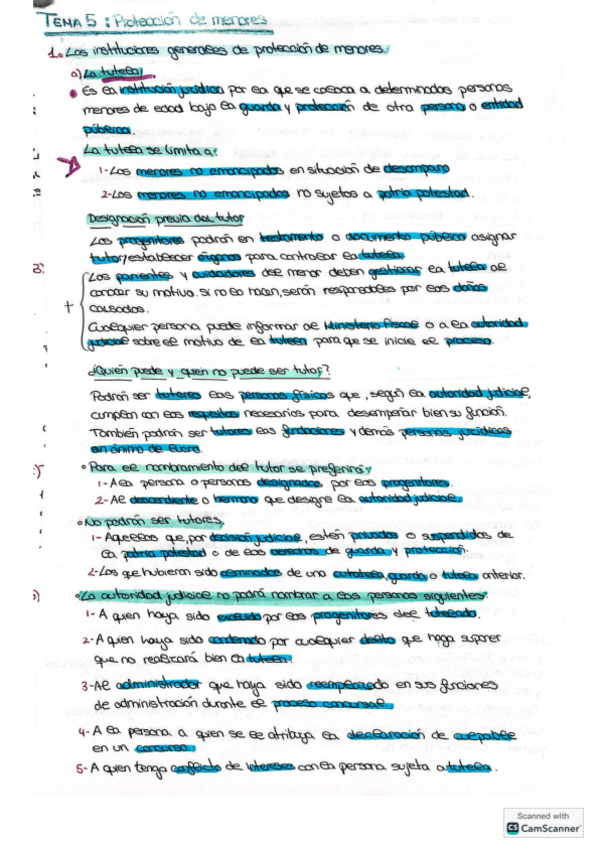 TEMA 5: Protección de menores
1. Las instituciones generales de protección de menores
a) La tutela
• Es la institución jurídica por la que se coloca a determinadas personas
menores de edad bajo la guarda y protección de otra persona o entidad
pública.
La tutela se limita a:
1- Los menores no emancipados en situación de desamparo
2- Los menores no emancipados no sujetos a patria potestad.
Designación previa del tutor
Los progenitores podrán en testamento o documento público asignar
tutor, establecer órganos para controlar la tutela
+ Los parientes y cuidadores del menor deben gestionar la tutela al
conocer su motivo. si no lo hacen, serán responsables por los daños
causados.
Cualquier persona puede informar al Ministerio fiscal o a la autoridad
judicial sobre el motivo de la tutela para que se inicie el proceso.
¿Quién puede y quien no puede ser tutor?
Podrán ser tutores las personas físicas que, según la autoridad judicial,
cumplan con los requisitos necesarios para desempeñar bien su función.
También podrán ser tutores las fundaciones y demás personas jurídicas
sin ánimo de lucro.
• Para el nombramiento del tutor se preferirá:
1- A la persona o personas designadas por los progenitores.
2- Al descendiente o hermano que designe la autoridad judicial.
• No podrán ser tutores
1- Aquellos que, por decisión judicial, estén privados o suspendidos de
la patria potestad o de los derechos de guarda y protección.
2- Los que hubieran sido eliminados de una curatela, guarda o tutela anterior.
• La autoridad judicial no podrá nombrar a las personas siguientes:
1- A quien haya sido excluido por los progenitores del tutelado.
2- A quien haya sido condenado por cualquier delito que haga suponer
que no realizará bien la tutela.
3- Al administrador que haya sido reemplazado en sus funciones
de administración durante el proceso concursal.
4- A la persona a quien se le atribuya la declaración de culpable
en un concurso.
5- A quien tenga conflicto de intereses con la persona sujeta a tutela.
Scanned with
CS CamScanner